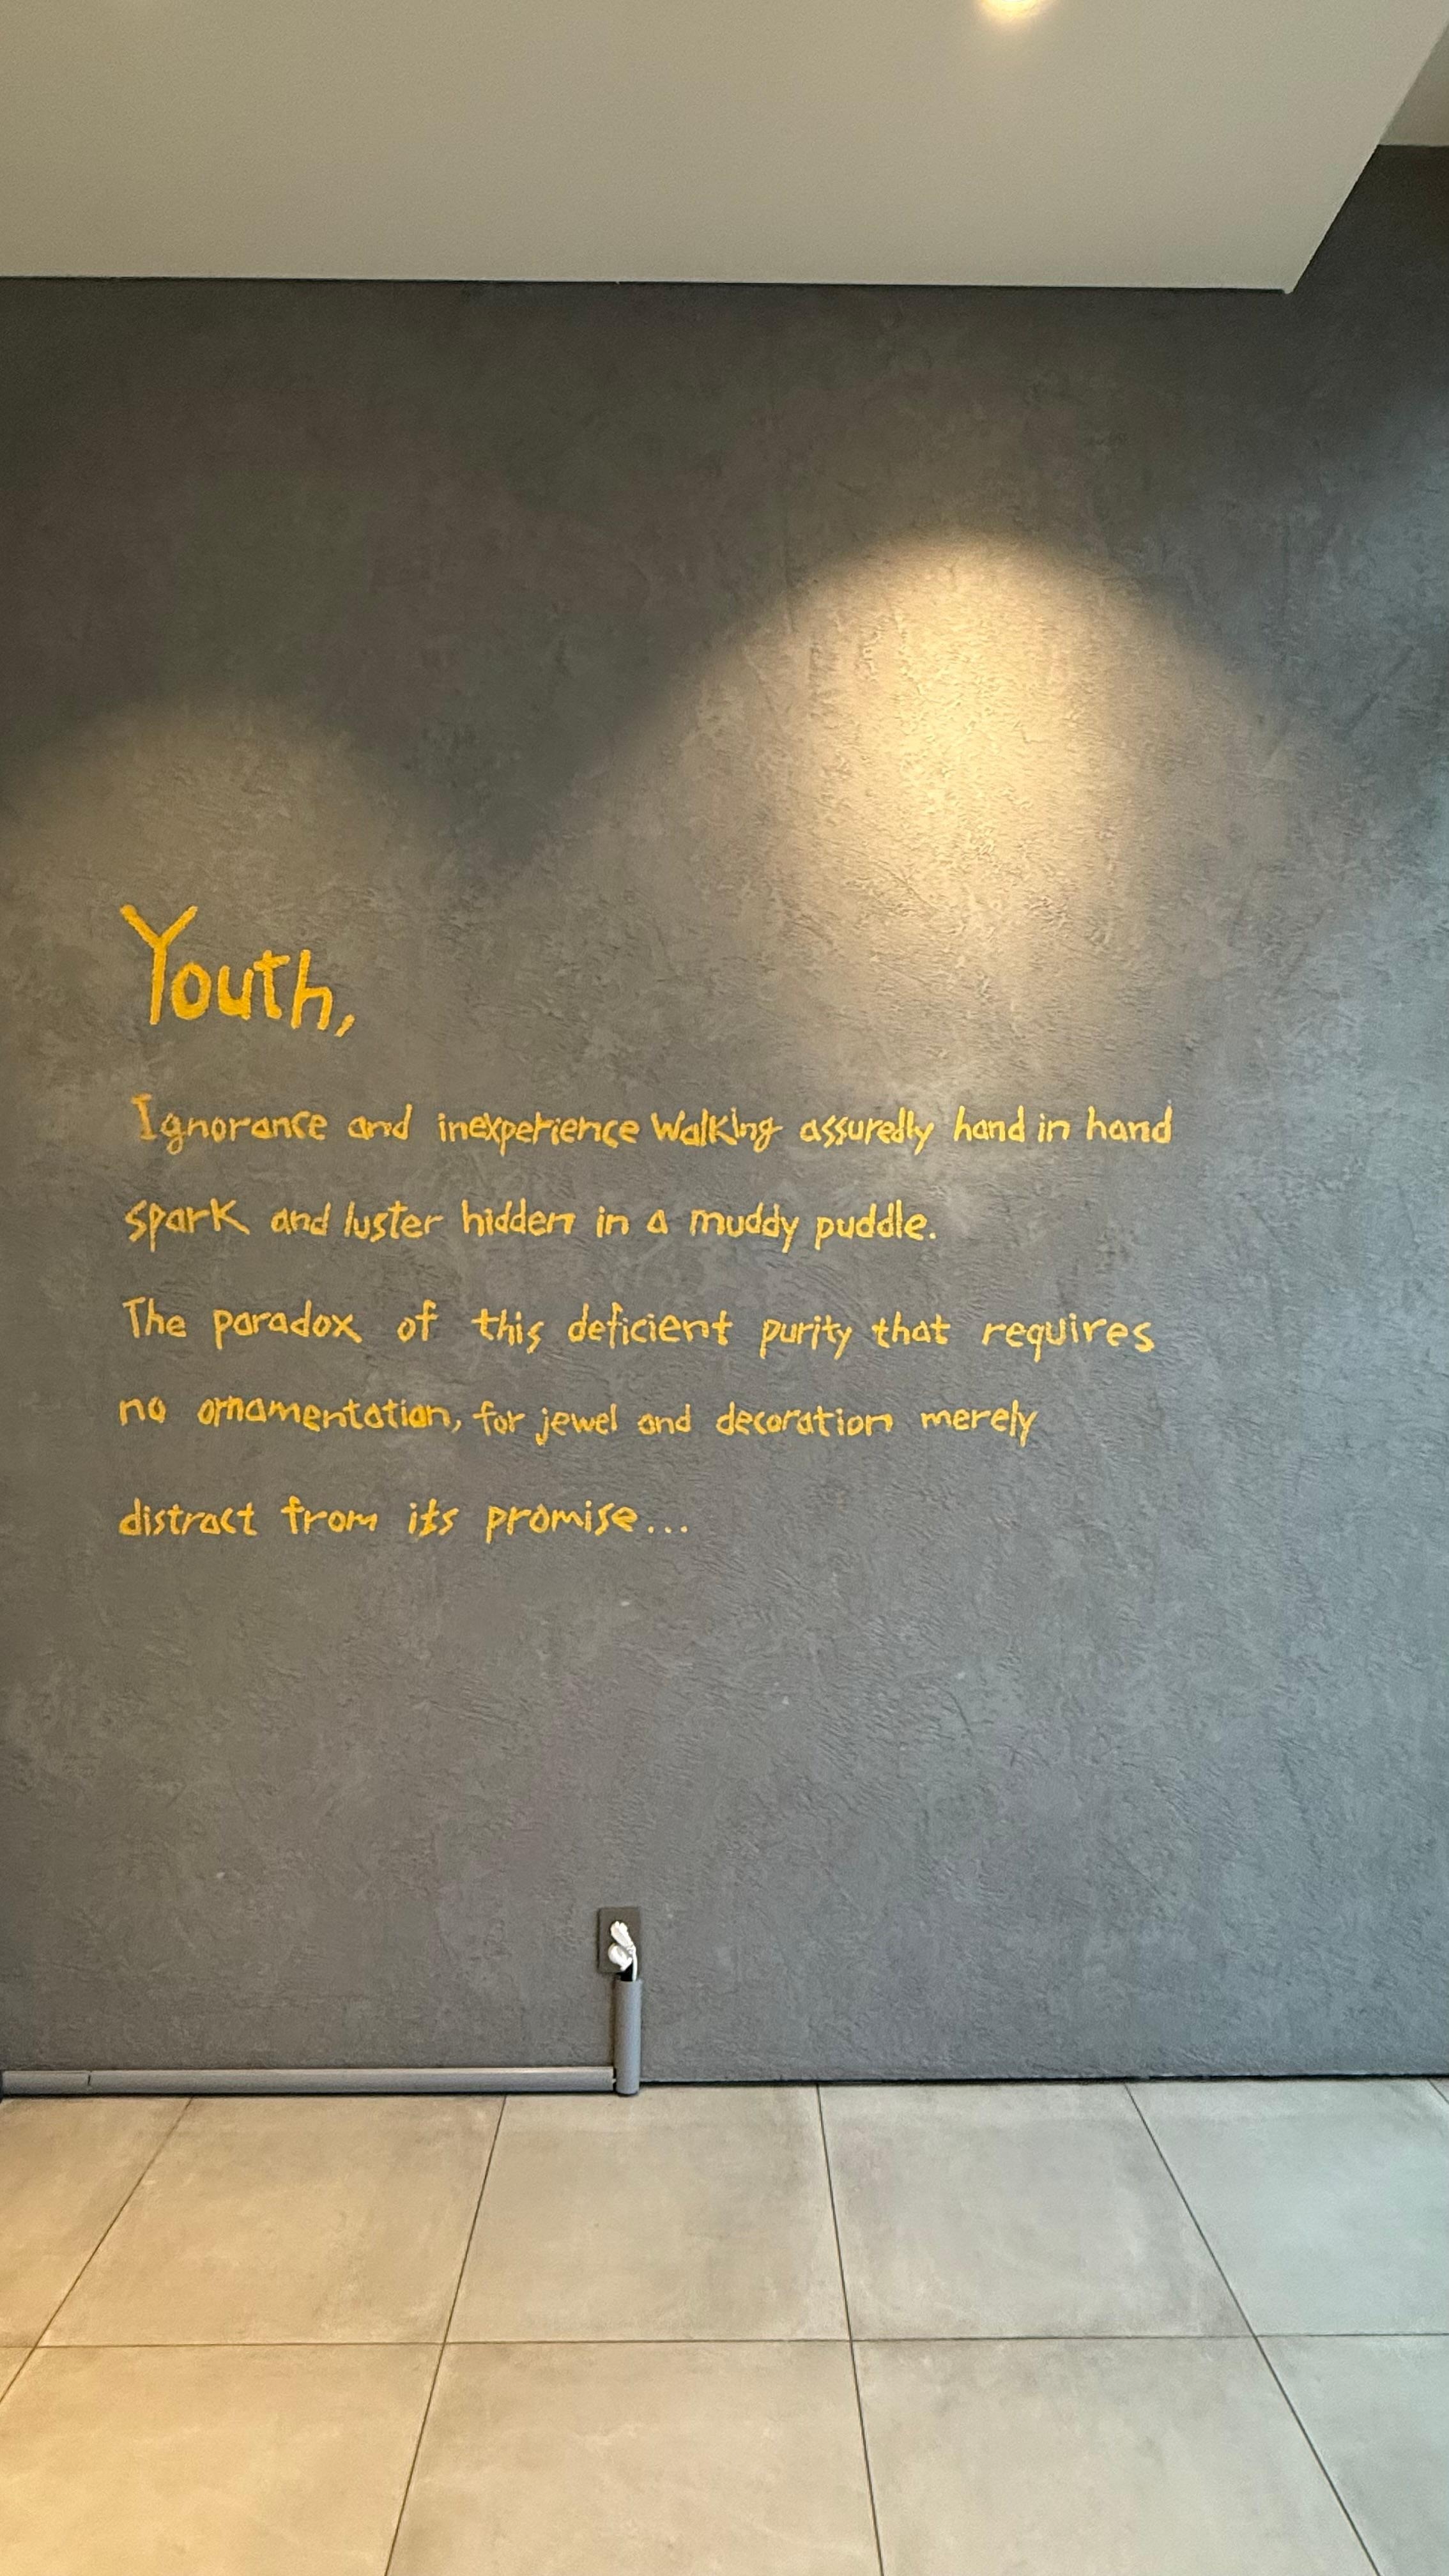 Youth,
Ignorance and inexperience Walking assuredly hand in hand
spark and luster hidden in a muddy puddle.
The paradox of this deficient purity that requires
no ornamentation, for jewel and decoration merely
distract from its promise...